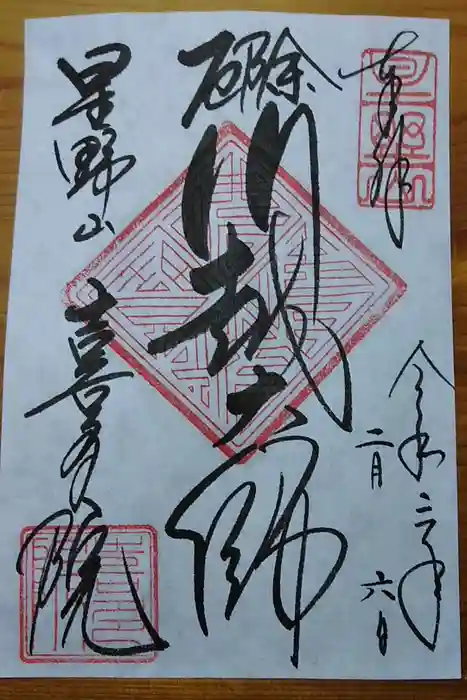 奉拝
令和二年
二月
六日
厄除
川越大師
星野山
喜多院